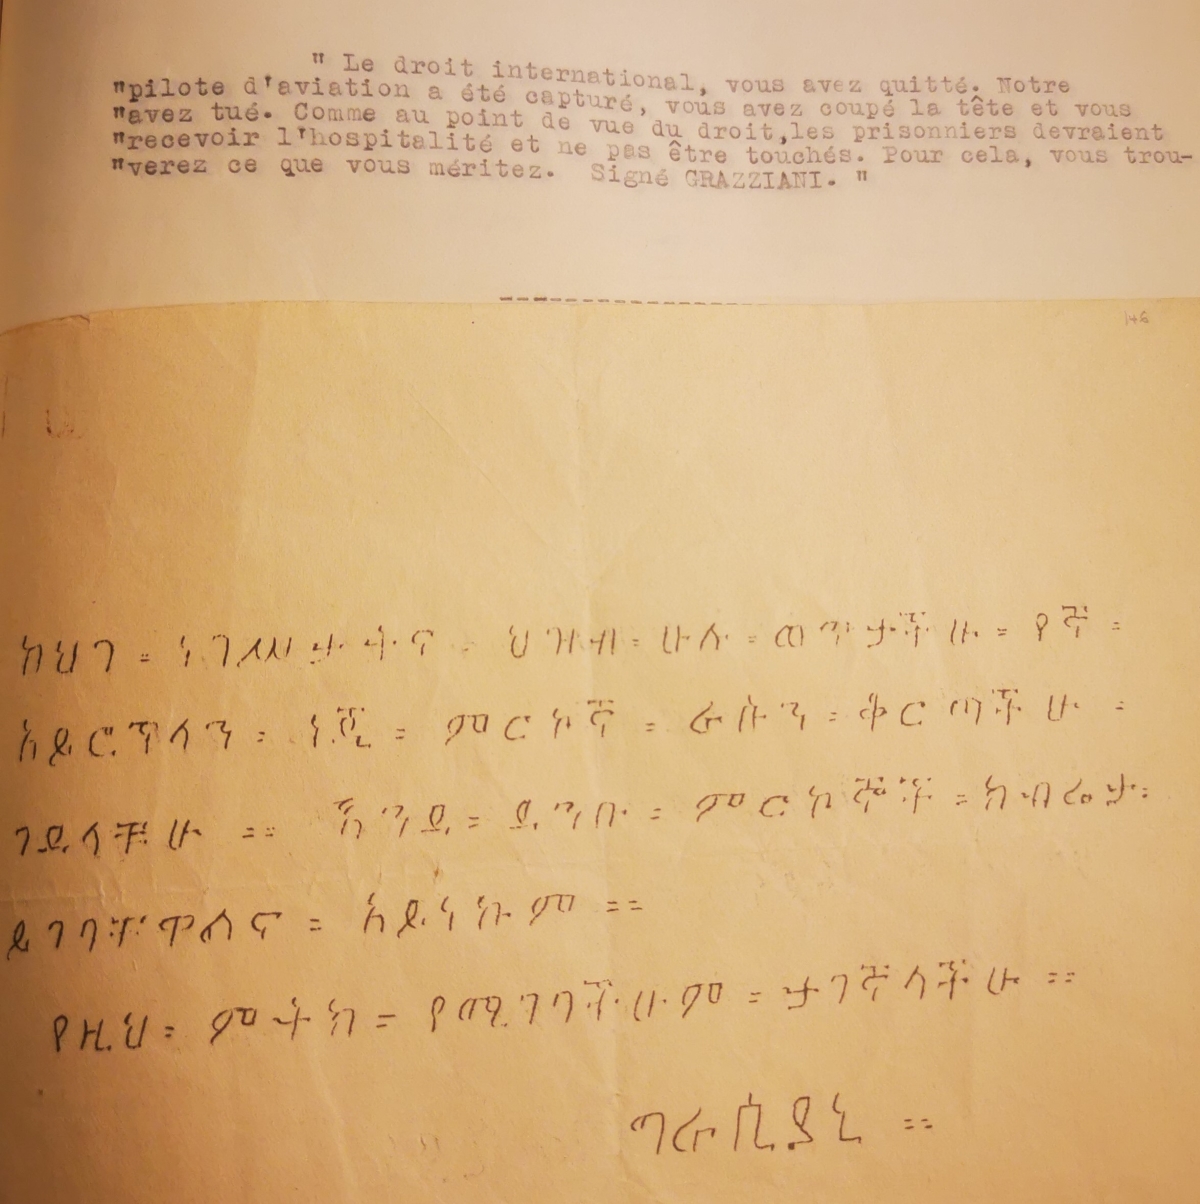 " Le droit international, vous avez quitté. Notre
"pilote d'aviation a été capturé, vous avez coupé la tête et vous
"avez tué. Comme au point de vue du droit,les prisonniers devraient
"recevoir l'hospitalité et ne pas être touchés. Pour cela, vous trou-
"verez ce que vous méritez. Signé GRAZZIANI. "
146
ከህግ = ህዝብ = ሁሉ = ወጥታችሁ = የኛ =
አይሮፕላን = ነጂ = ምርኮኛ = ራሱን = ቆርጣችሁ =
ገደላችሁ == እንደ = ደንቡ = ምርኮኞች = ከብሬታ =
ይገባቸዋልና = አይነኩም ==
የዚህ = ምትክ = የሚገባችሁም = ታገኛላችሁ ==
ግራሲያኒ ==